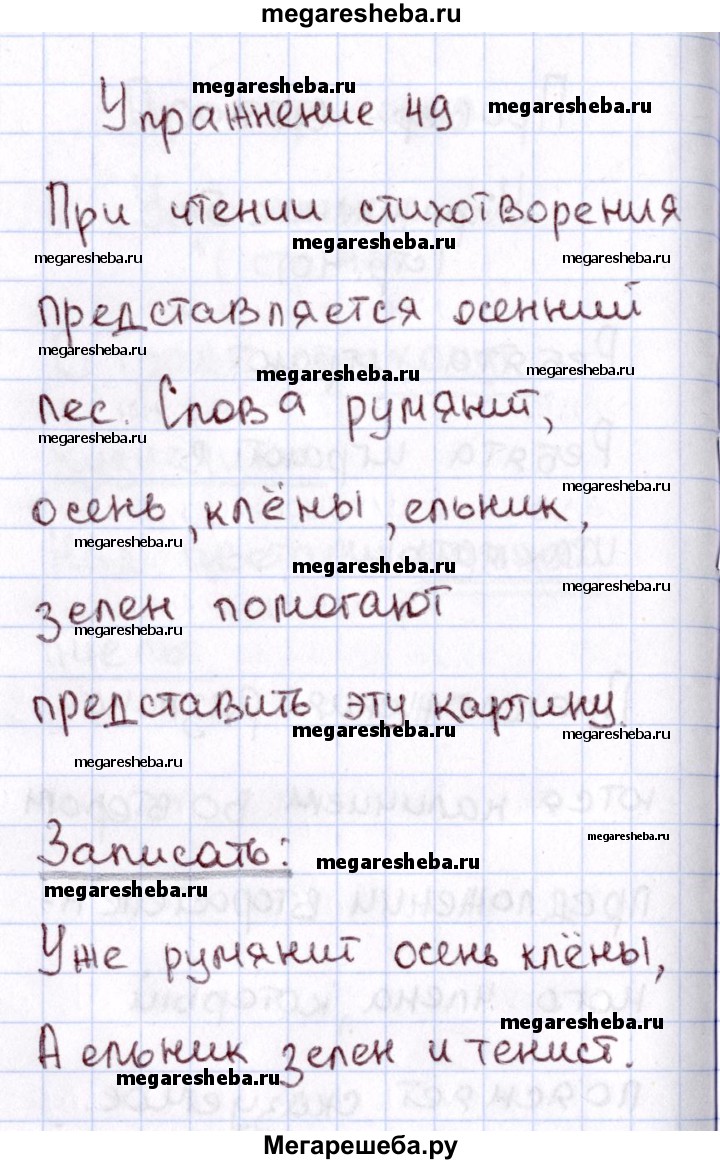 megaresheba.ru
megaresheba.ru
megaresheba.ru
Упражнение 49
При чтении стихотворения
megaresheba.ru
megaresheba.ru
megaresheba.ru
представляется осенний
megaresheba.ru
megaresheba.ru
megaresheba.ru
лес. Слова румянит,
megaresheba.ru
megaresheba.ru
осень, клёны, ельник,
megaresheba.ru
megaresheba.ru
megaresheba.ru
зелен помогают
megaresheba.ru
представить эту картину.
megaresheba.ru
megaresheba.ru
megaresheba.ru
megaresheba.ru
Записать:
megaresheba.ru
megaresheba.ru
Уже румянит осень клёны,
megaresheba.ru
А ельник зелен и тенист.
megaresheba.ru
Мегарешеба.ру